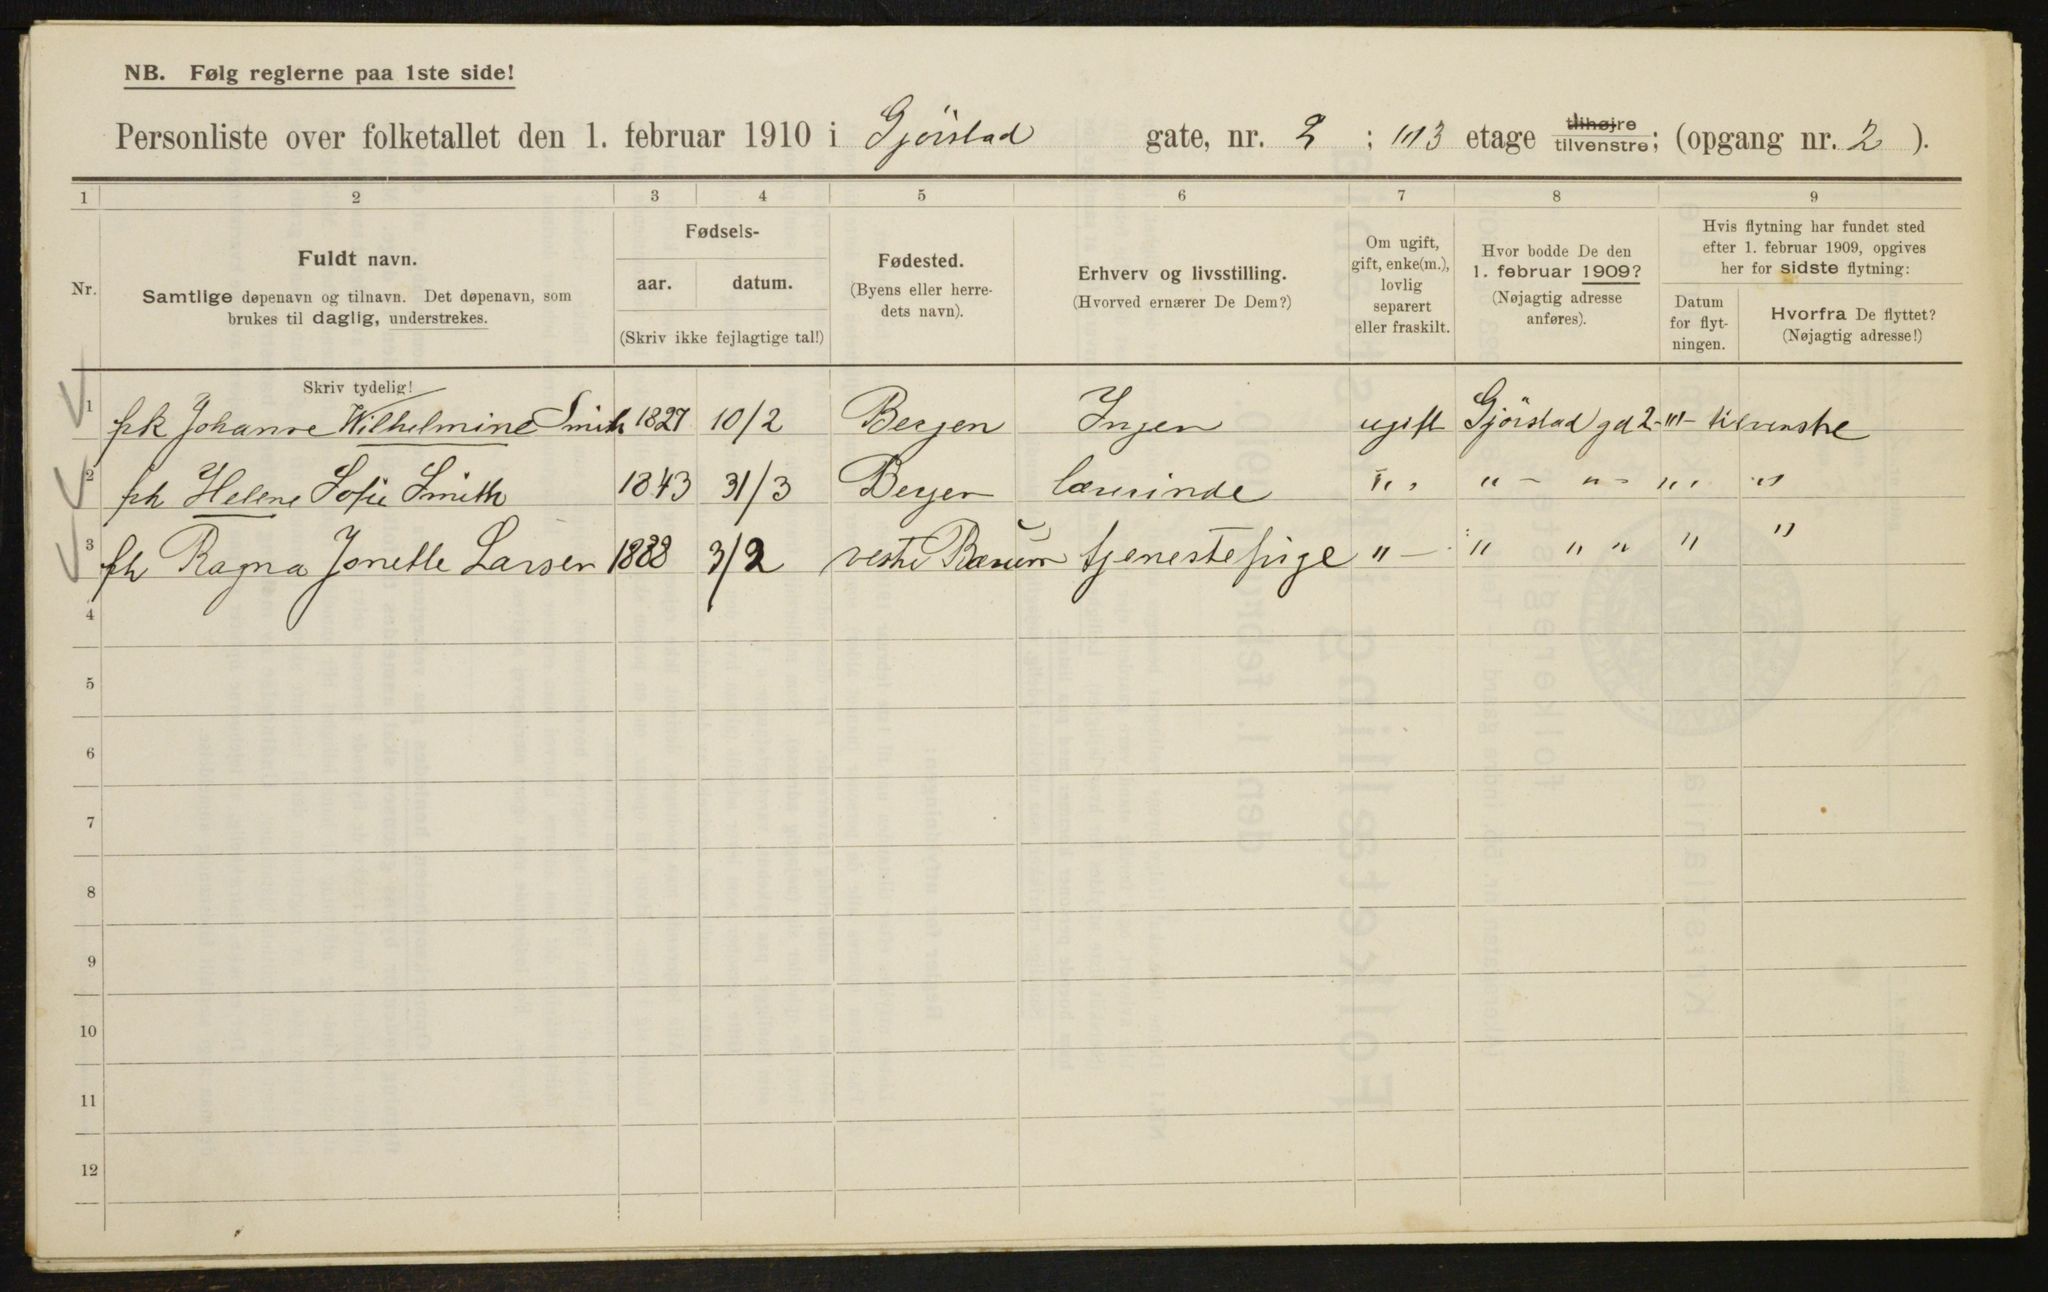 NB. Følg reglerne paa 1ste side!
Personliste over folketallet den 1. februar 1910 i Gjörstad gate, nr. 2 ; 3 etage tilhøjre tilvenstre; (opgang nr. 2 ).
1 2 3 4 5 6 7 8 9
Nr.
Fuldt navn.
Samtlige døpenavn og tilnavn. Det døpenavn, som
brukes til daglig, understrekes.
Fødsels-
aar. datum.
(Skriv ikke fejlagtige tal!)
Fødested.
(Byens eller herre-
dets navn).
Erhverv og livsstilling.
(Hvorved ernærer De Dem?)
Om ugift,
gift, enke(m.),
lovlig
separert
eller fraskilt.
Hvor bodde De den
1. februar 1909?
(Nøjagtig adresse
anføres).
Hvis flytning har fundet sted
efter 1. februar 1909, opgives
her for sidste flytning:
Datum
for flyt-
ningen.
Hvorfra De flyttet?
(Nøjagtig adresse!)
Skriv tydelig!
1 frk Johanne Wilhelmine Smith 1827 10/2 Bergen Ingen ugift Gjörstad gd 2 - "' - tilvenstre
2 frk Helene Sofie Smith 1843 31/3 Bergen lærerinde " " - " - " "
3 frk Ragna Jonette Larsen 1888 3/2 vestre Bærum tjenestepige " - " " " " "
4
5
6
7
8
9
10
11
12